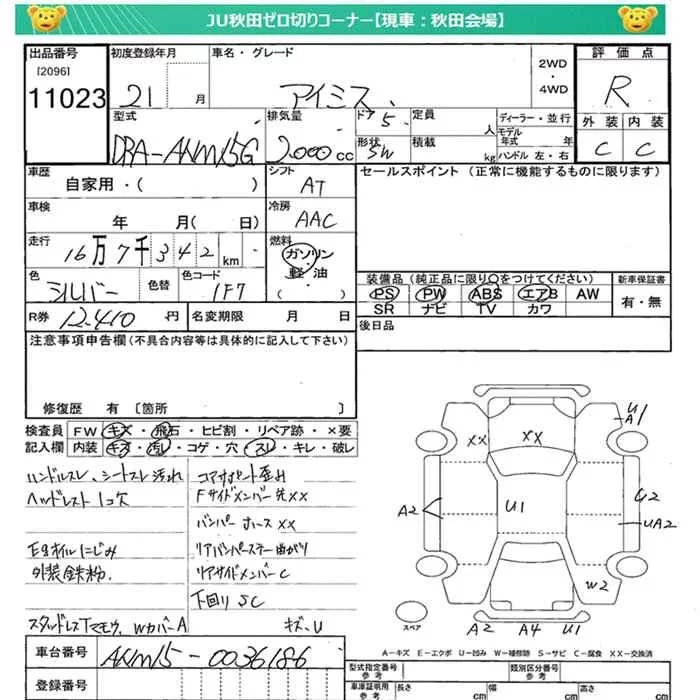 JU秋田ゼロ切りコーナー【現車：秋田会場】
出品番号
［2096］
11023
初度登録年月
21 月
車名・グレード
アイミス
2WD
・
4WD
評価点
R
外装 内装
C C
型式
DBA-ANM15G
排気量
2.000 cc
ドア 5
形状 SW
定員 人
積載 kg
ディーラー・並行
モデル年式 年
ハンドル 左・右
車歴
自家用・( )
シフト
AT
セールスポイント（正常に機能するものに限ります）
車検
年 月( 日)
冷房
AAC
走行
16万7千342km
燃料
ガソリン
・
軽油
( )
色
シルバー
色替
色コード
1F7
装備品（純正品に限り〇をつけてください）
PS PW ABS エアB AW
SR ナビ TV カワ
新車保証書
有・無
R券 12.410 円
名変期限 月 日
後日品
注意事項申告欄(不具合内容等は具体的に記入して下さい)
修復歴 有〔箇所 〕
検査員
記入欄
FW キズ・飛石・ヒビ割・リペア跡・×要
内装 キズ・汚レ・コゲ・穴・スレ・キレ・破レ
ハンドルスレ、シートスレ汚れ
ヘッドレスト1コ欠
Egオイルにじみ
外装鉄粉.
スタッドレスTマモウ.WカバーA
コアサポート歪み
Fサイドメンバー先XX
バンパーホースXX
リアバンパーステー曲がり
リアサイドメンバーC
下回りSC
キズ・U
XX
XX
U
A1
A2
U1
U2
UA2
W2
スペア
A2 A4 U1
A－キズ E－エクボ U－凹み W－補修跡 S－サビ C－腐食 XX－交換済
車台番号
ANM15-0036186
登録番号
型式指定番号
参考
類別区分番号
参考
車庫証明用
参考
長さ cm
幅 cm
高さ cm